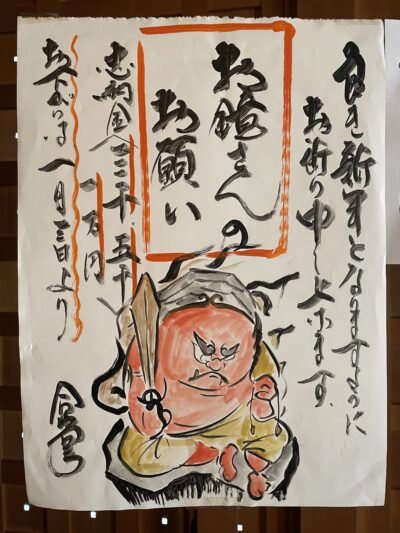 良き新年となりますように
お祈り申し上げます。
お鏡さんの
お願い
志納金 三千 五千
一万円
お下がりは一月三日より
合掌